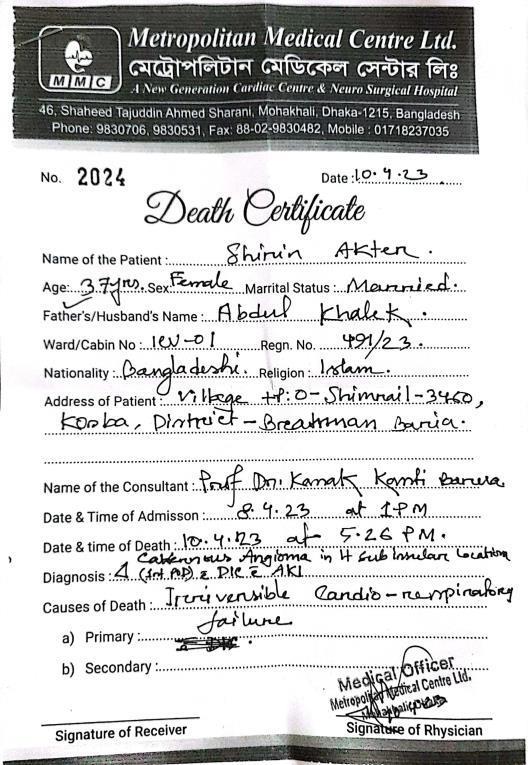 MMC
Metropolitan Medical Centre Ltd.
মেট্রোপলিটান মেডিকেল সেন্টার লিঃ
A New Generation Cardiac Centre & Neuro Surgical Hospital
46, Shaheed Tajuddin Ahmed Sharani, Mohakhali, Dhaka-1215, Bangladesh
Phone: 9830706, 9830531, Fax: 88-02-9830482, Mobile : 01718237035
No. 2024 Date : 10.4.23
Death Certificate
Name of the Patient : Shirin Akter.
Age: 37yrs. Sex Female Marrital Status : Married.
Father's/Husband's Name : Abdul Khalek.
Ward/Cabin No : ICU-01 Regn. No. 491/23.
Nationality : Bangladeshi. Religion : Islam.
Address of Patient : Village +P:O-Shimrail-3460,
Kosba, District-Breahman Baria.
Name of the Consultant : Prof Dr. Kanak Kanti Barua
Date & Time of Admisson : 8.4.23 at 1PM
Date & time of Death : 10.4.23 at 5.26 PM.
Diagnosis : Cavernous Angioma in Lt Subinsular location
DIC AKI
Causes of Death : Irriversible Cardio-respiratory
failure
a) Primary :
b) Secondary :
Medical Officer
Metropolitan Medical Centre Ltd.
Signature of Receiver Signature of Rhysician